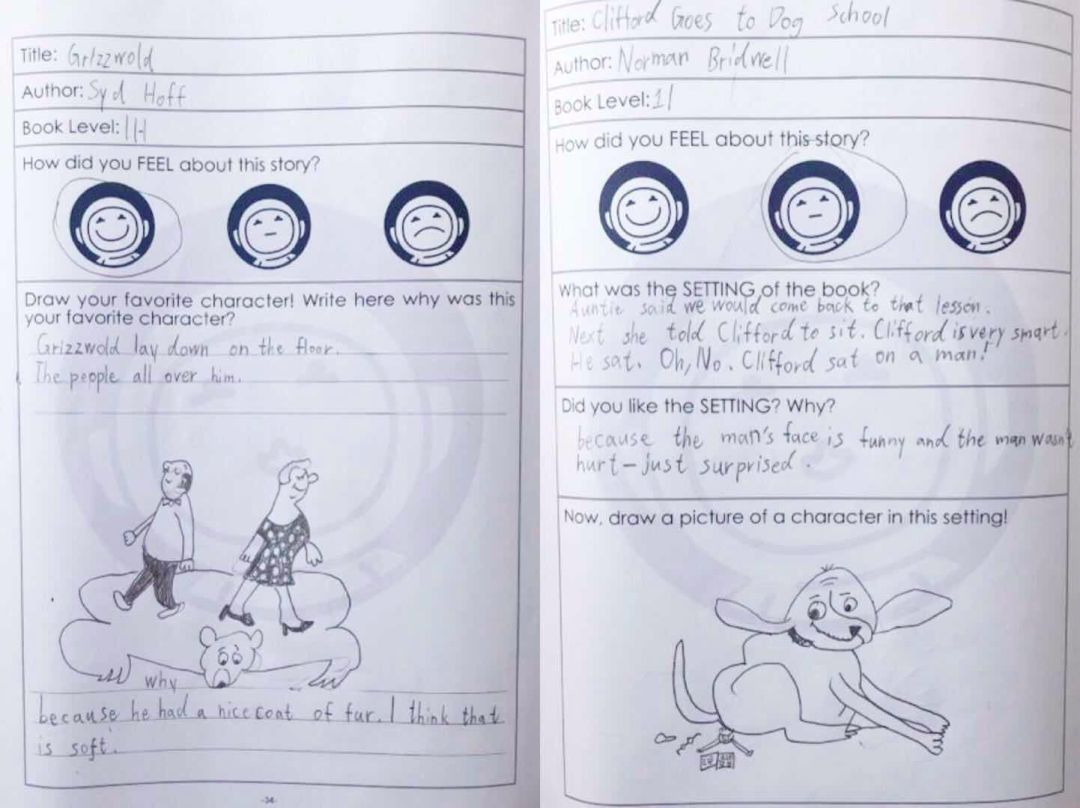 Title: Grizzwold
Author: Syd Hoff
Book Level:
How did you FEEL about this story?
Draw your favorite character! Write here why was this
your favorite character?
Grizzwold lay down on the floor.
The people all over him.
why
because he had a nice coat of fur. I think that
is soft.
-34-
Title: Clifford Goes to Dog School
Author: Norman Bridwell
Book Level:
How did you FEEL about this story?
What was the SETTING of the book?
Auntie said we would come back to that lesson.
Next she told Clifford to sit. Clifford is very smart.
He sat. Oh, No. Clifford sat on a man!
Did you like the SETTING? Why?
because the man's face is funny and the man wasn't
hurt – just surprised.
Now, draw a picture of a character in this setting!